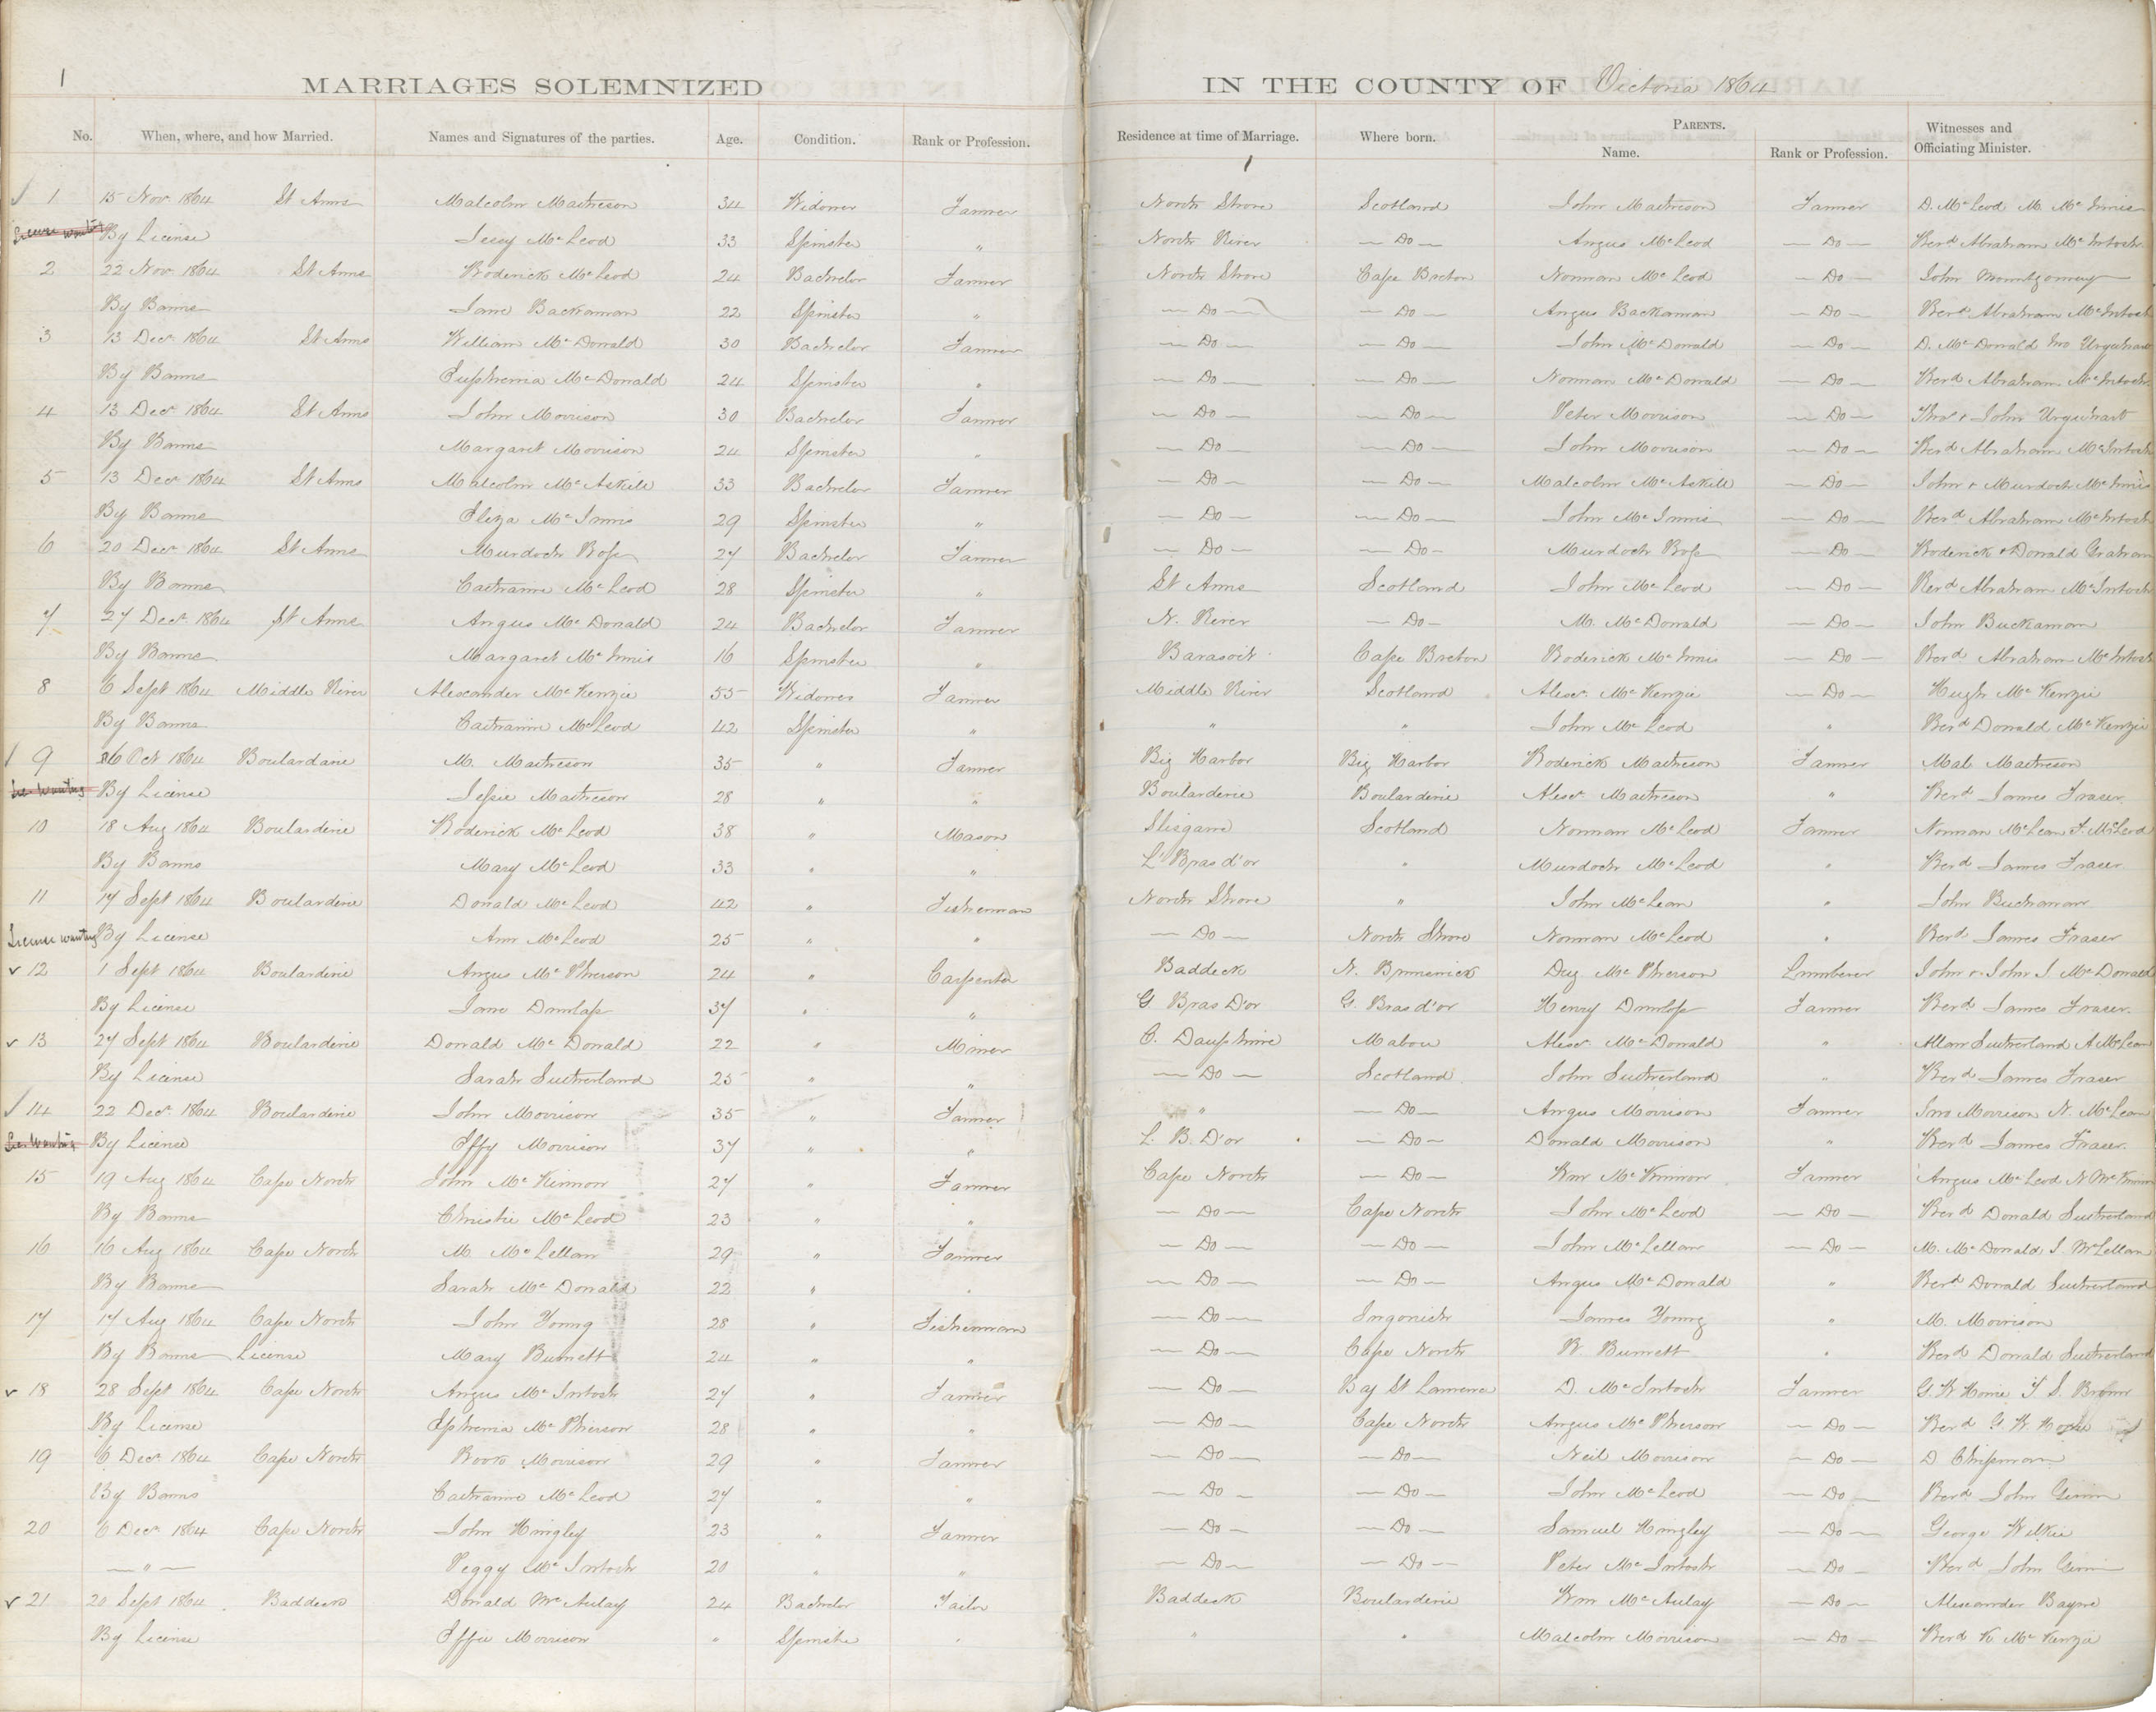 1
MARRIAGES SOLEMNIZED IN THE COUNTY OF Victoria 1864
No. When, where, and how Married. Names and Signatures of the parties. Age. Condition. Rank or Profession. Residence at time of Marriage. Where born. PARENTS. Name. Rank or Profession. Witnesses and Officiating Minister.
1 15 Nov. 1864 St Anns Malcolm Matheson 34 Widower Farmer North Shore Scotland John Matheson Farmer D. McLeod M. McInnis
License wanting By License McLeod 33 Spinster " North River — Do — Angus McLeod — Do — Revd Abraham McIntosh
2 22 Nov 1864 St Anns Roderick McLeod 24 Bachelor Farmer North Shore Cape Breton Norman McLeod — Do — John Montgomery
By Banns Jane Backaman 22 Spinster " — Do — — Do — Angus Backaman — Do — Revd Abraham McIntosh
3 13 Decr 1864 St Anns William McDonald 30 Bachelor Farmer — Do — — Do — John McDonald — Do — D. McDonald Jno Urquhart
By Banns Euphemia McDonald 24 Spinster " — Do — — Do — Norman McDonald — Do — Revd Abraham McIntosh
4 13 Decr 1864 St Anns John Morrison 30 Bachelor Farmer — Do — — Do — Peter Morrison — Do — John Urquhart
By Banns Margaret Morrison 24 Spinster " — Do — — Do — John Morrison — Do — Revd Abraham McIntosh
5 13 Decr 1864 St Anns Malcolm McAskill 33 Bachelor Farmer — Do — — Do — Malcolm McAskill — Do — John & Murdoch McInnis
By Banns Eliza McInnis 29 Spinster " — Do — — Do — John McInnis — Do — Revd Abraham McIntosh
6 20 Decr 1864 St Anns Murdoch Ross 27 Bachelor Farmer — Do — — Do — Murdoch Ross — Do — Roderick & Donald Graham
By Banns Catharine McLeod 28 Spinster " St Anns Scotland John McLeod — Do — Revd Abraham McIntosh
7 27 Decr. 1864 St Anns Angus McDonald 24 Bachelor Farmer N. River — Do — M. McDonald — Do — John Buckaman
By Banns Margaret McInnis 16 Spinster " Barasoit Cape Breton Roderick McInnis — Do — Revd Abraham McIntosh
8 6 Sept 1864 Middle River Alexander McKenzie 55 Widower Farmer Middle River Scotland Alexr. McKenzie — Do — Hugh McKenzie
By Banns Catharine McLeod 42 Spinster " " " John McLeod " Revd Donald McKenzie
9 26 Oct 1864 Boulardarie M. Matheson 35 " Farmer Big Harbor Big Harbor Roderick Matheson Farmer Mal. Matheson
Lic. Wanting By License Jessie Matheson 28 " " Boularderie Boularderie Alexr. Matheson " Revd James Fraser
10 18 Aug 1864 Boularderie Roderick McLeod 38 " Mason Scotland Norman McLeod Farmer Norman McLean J. McLeod
By Banns Mary McLeod 33 " " L' Bras d'or " Murdoch McLeod " Revd James Fraser
11 17 Sept 1864 Boularderie Donald McLeod 42 " Fisherman North Shore " John McLean " John Buchanan
License wanting By License Ann McLeod 25 " " — Do — North Shore Norman McLeod " Revd James Fraser
12 1 Sept 1864 Boularderie Angus McPherson 24 " Carpenter Baddeck N. Brunswick McPherson Lumberer John & John J. McDonald
By License Jane Dunlap 37 " " G Bras D'or G. Bras d'or Henry Dunlop Farmer Revd James Fraser.
13 27 Sept 1864 Boularderie Donald McDonald 22 " Miner C. Dauphine Mabou Alexr. McDonald " Allan Sutherland A McLean
By License Sarah Sutherland 25 " " — Do — Scotland John Sutherland " Revd James Fraser
14 22 Decr. 1864 Boularderie John Morrison 35 " Farmer " — Do — Angus Morrison Farmer Jno Morrison N. McLean
Lic. Wanting By License Effy Morrison 37 " " L. B. D'or — Do — Donald Morrison " Revd James Fraser.
15 19 Aug 1864 Cape North John McKinnon 27 " Farmer Cape North — Do — Wm McKinnon Farmer Angus McLeod N McKinnon
By Banns Christie McLeod 23 " " — Do — Cape North John McLeod — Do — Revd Donald Sutherland
16 16 Aug 1864 Cape North M. McLellan 29 " Farmer — Do — — Do — John McLellan — Do — M. McDonald J. McLellan
By Banns Sarah McDonald 22 " " — Do — — Do — Angus McDonald " Revd Donald Sutherland
17 17 Aug 1864 Cape North John Young 28 " Fisherman — Do — Ingonish James Young " M. Morrison
By Banns License Mary Burnett 24 " " — Do — Cape North R. Burnett " Revd Donald Sutherland
18 28 Sept 1864 Cape North Angus McIntosh 27 " Farmer — Do — Bay St Lawrence D. McIntosh Farmer
By License Ephemia McPherson 28 " " — Do — Cape North Angus McPherson — Do — Revd
19 6 Decr 1864 Cape North Morrison 29 " Farmer — Do — — Do — Neil Morrison — Do — D Chipman
By Banns Catharine McLeod 27 " " — Do — — Do — John McLeod — Do — Revd John Gunn
20 6 Decr 1864 Cape North John Hingley 23 " Farmer — Do — — Do — Samuel Hingley — Do — George Wilkie
— " — Peggy McIntosh 20 " " — Do — — Do — Peter McIntosh — Do — Revd John Gunn
21 20 Sept 1864 Baddeck Donald McAulay 24 Bachelor Tailor Baddeck Boularderie Wm McAulay — Do — Alexander Bayne
By License Effie Morrison " Spinster " " " Malcolm Morrison — Do — Revd K. McKenzie